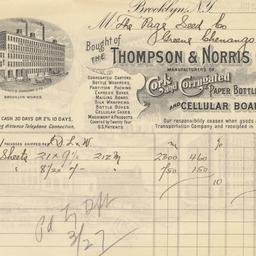 Brooklyn, N.Y.
M The Page Seed Co
Greene Chenango
Bought of
THE THOMPSON & NORRIS
MANUFACTURERS OF
Cork and Corrugated PAPER BOTTLE
AND CELLULAR BOAR
CORRUGATED CARTONS
BOTTLE WRAPPERS.
PARTITION PACKING
EXPRESS BOXES.
MAILING BOARD.
SILK WRAPPERS.
BOTTLE BOXES.
CELLULAR CASES.
MACHINERY & PRODUCTS
Covered by Twenty Four
U.S. PATENTS.
BROOKLYN WORKS.
CASH 30 DAYS OR 2% 10 DAYS.
ng distance Telephone Connection.
Our responsibility ceases when goods
Transportation Company and receipted in
PACKAGES SHIPPED PER D. L. & W.
Sheets 21 x 9½ 212 M 2300 460
" 8/20 750 150
10
Pd by Dft
3/27